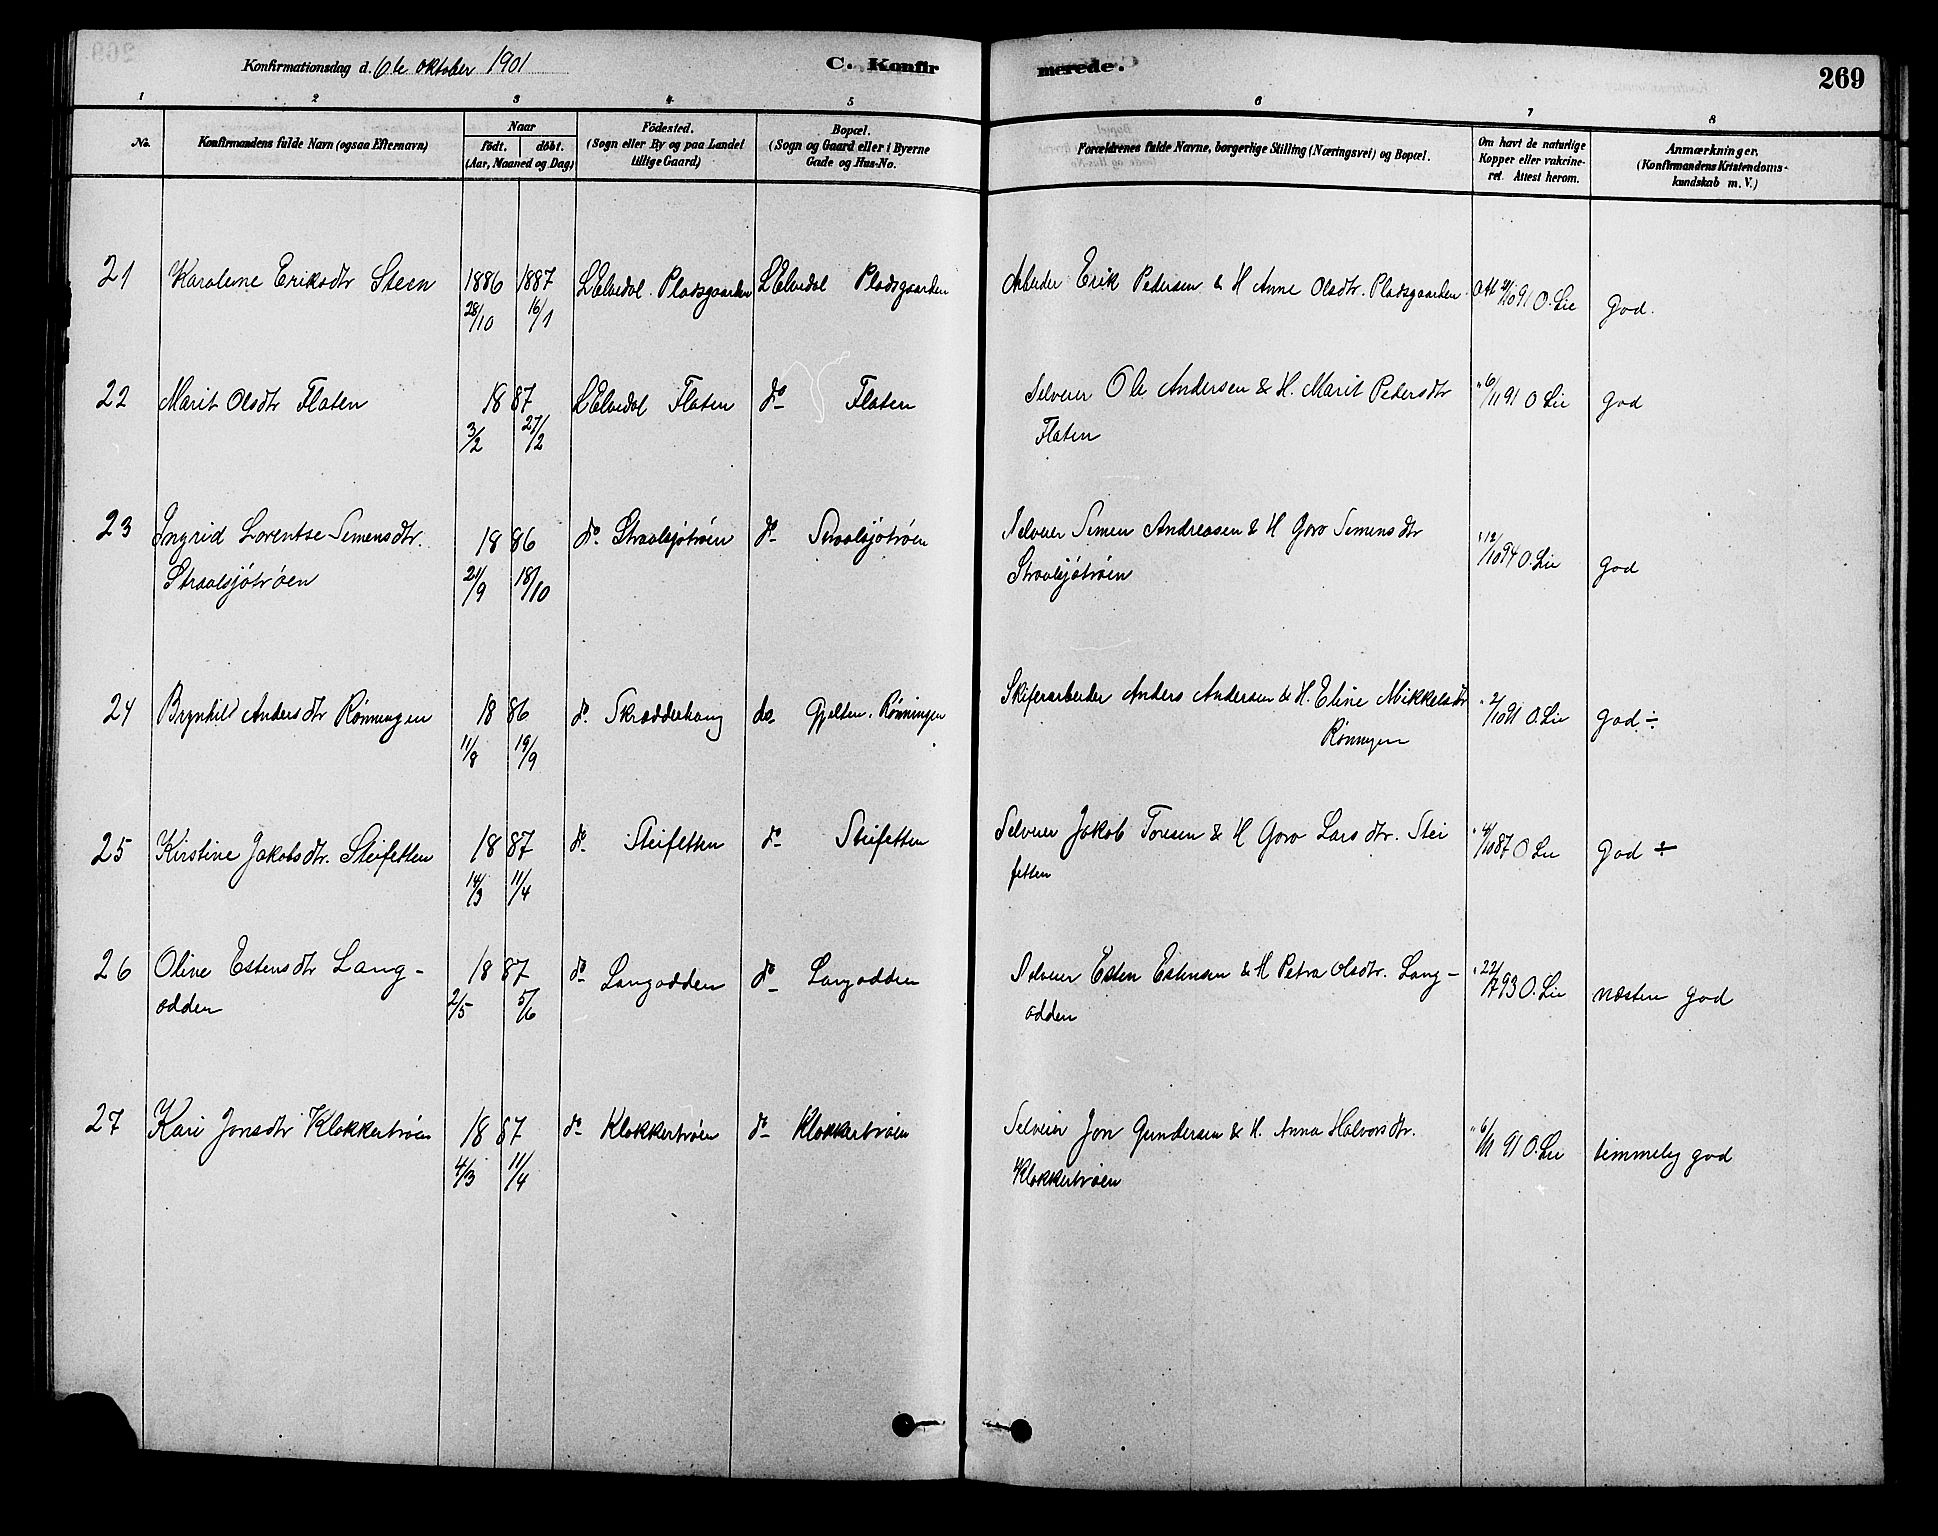 Konfirmationsdag d. 6te oktober 1901
C. Konfirmerede.
269
1 2 3 4 5 6 7 8
No.
Konfirmandens fulde Navn (ogsaa Efternavn)
Naar
födt. döbt.
(Aar, Maaned og Dag)
Födested.
(Sogn eller By og paa Landet
tillige Gaard)
Bopæl.
(Sogn og Gaard eller i Byerne
Gade og Hus-No.
Forældrenes fulde Navne, borgerlige Stilling (Næringsvei) og Bopæl.
Om havt de naturlige
Kopper eller vakcine-
ret. Attest herom.
Anmærkninger,
(Konfirmandens Kristendoms-
kundskab m. V.)
21 Karolene Eriksdtr Steen 1886 1887 L Elvedal Pladsgaarden L Elvedal Pladsgaarden Arbeider Erik Pedersen & H Anne Olsdtr. Pladsgaarden Att 21/10 91 O. Lie god.
28/10 16/1
22 Marit Olsdtr Flaten 18 87 L Elvedal Flaten do Flaten Selveier Ole Andersen & H. Marit Pedersdtr " 6/11 91 O Lie god
3/2 27/2 Flaten
23 Ingrid Lorentse Simensdtr. 18 86 do Straalsjøtrøen do Straalsjøtrøen Selveier Simen Andreassen & H Goro Simensdtr " 12/10 94 O. Lie god
Straalsjøtrøen 21/9 18/10 Straalsjøtrøen
24 Brynhild Andersdtr Rønningen 18 86 do Skradderhaug do Gjelten. Rønningen Skiferarbeider Anders Andersen & H. Eline Mikkelsdtr " 2/10 91 O. Lie god ÷
11/8 19/9 Rønningen
25 Kirstine Jakobsdtr. Steifetten 18 87 do Steifetten do Steifetten Selveier Jakob Toresen & H Goro Larsdtr. Stei " 4/10 87 O Lie god ÷
14/3 11/4 fetten
26 Oline Estensdtr Lang- 18 87 do Langodden do Langodden Selveier Esten Estensen & H Petra Olsdtr. Lang- " 22/7 93 O. Lie næsten god
odden 2/5 5/6 odden
27 Kari Jonsdtr Klokkertrøen 18 87 do Klokkertrøen do Klokkertrøen Selveier Jon Gundersen & H. Anna Halvorsdtr. " 6/11 91 O. Lie temmelig god
4/3 11/4 Klokkertrøen